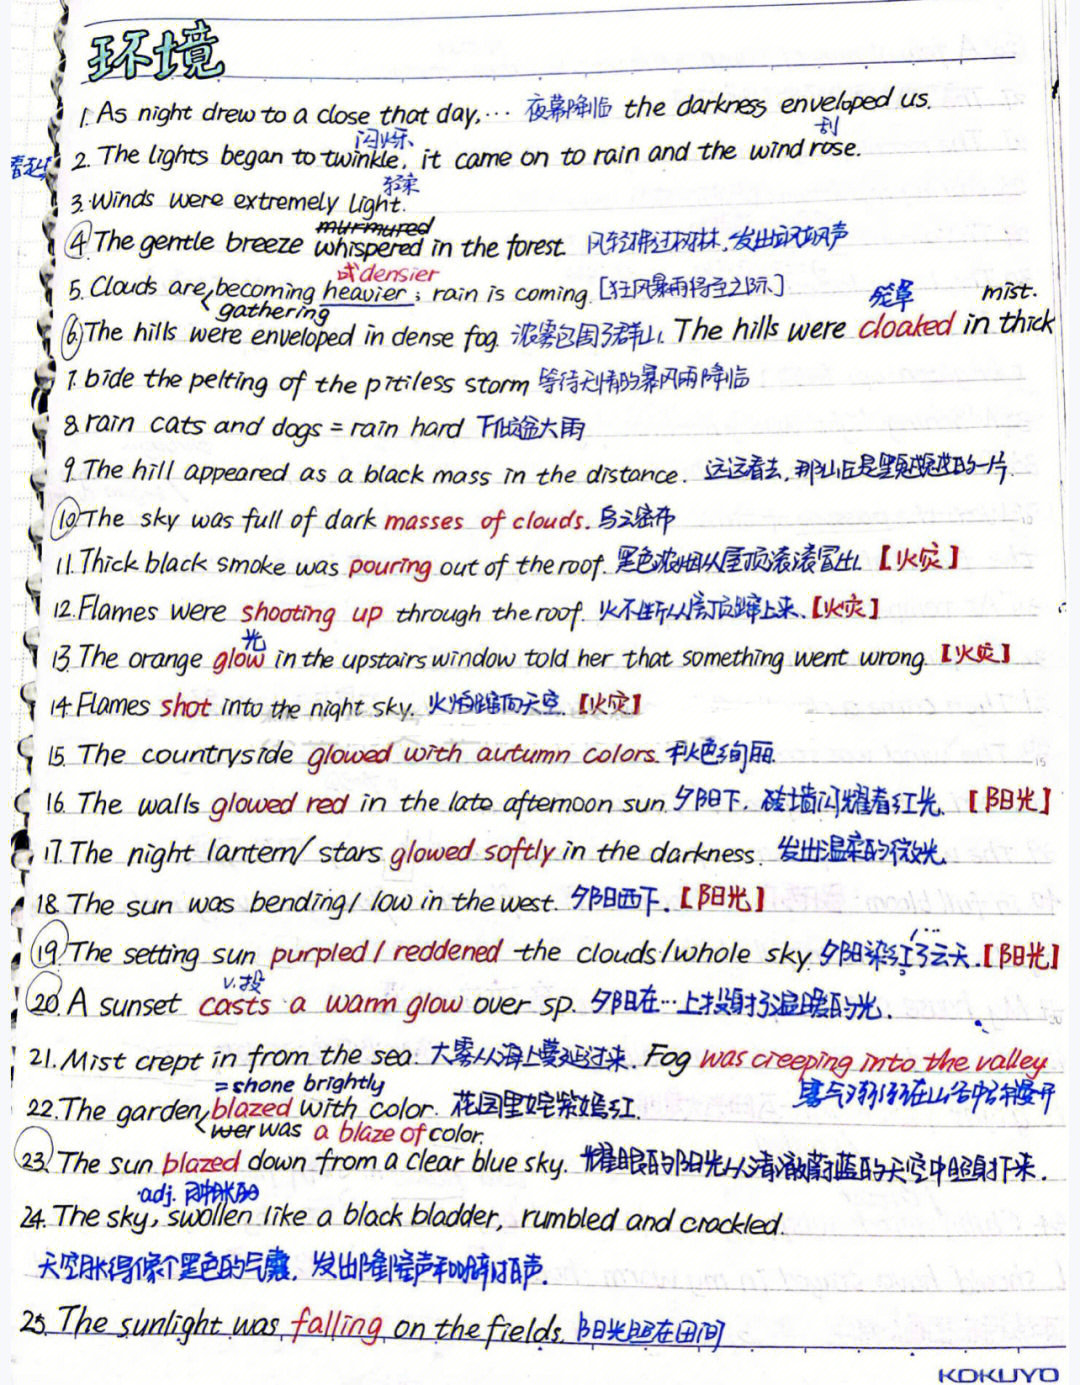 环境
1. As night drew to a close that day,… 夜幕降临 the darkness enveloped us.
闪烁 刮
2. The lights began to twinkle, it came on to rain and the wind rose.
轻柔
3. Winds were extremely light.
murmured
4. The gentle breeze whispered in the forest. 风轻拂过树林,发出沉沉风声
或densier
5. Clouds are becoming heavier; rain is coming. [狂风暴雨将至之际]
gathering
笼罩 mist.
6. The hills were enveloped in dense fog 浓雾包围了群山. The hills were cloaked in thick
7. bide the pelting of the pitiless storm 等待无情的暴风雨降临
8. rain cats and dogs = rain hard 下倾盆大雨
9. The hill appeared as a black mass in the distance. 远远看去,那山丘是黑魆魆的一片.
10. The sky was full of dark masses of clouds. 乌云密布
11. Thick black smoke was pouring out of the roof. 黑色浓烟从屋顶滚滚冒出.【火灾】
12. Flames were shooting up through the roof. 火不断从房顶蹿上来.【火灾】
光
13. The orange glow in the upstairs window told her that something went wrong【火灾】
14. Flames shot into the night sky. 火焰蹿向天空.【火灾】
15. The countryside glowed with autumn colors. 秋色绚丽.
16. The walls glowed red in the late afternoon sun. 夕阳下,砖墙闪耀着红光.【阳光】
17. The night lantern/ stars glowed softly in the darkness. 发出温柔的微光.
18. The sun was bending/ low in the west. 夕阳西下.【阳光】
19. The setting sun purpled / reddened the clouds/whole sky. 夕阳染红了云天.【阳光】
v.投
20. A sunset casts a warm glow over sp. 夕阳在…上投射了温暖的光.
21. Mist crept in from the sea. 大雾从海上蔓延过来. Fog was creeping into the valley
=shone brightly 雾气渐渐在山谷中弥漫开
22. The garden blazed with color. 花园里姹紫嫣红.
wer was a blaze of color.
23. The sun blazed down from a clear blue sky. 耀眼的阳光从清澈蔚蓝的天空中照射下来.
adj. 肿胀的
24. The sky, swollen like a black bladder, rumbled and crackled.
天空胀得像个黑色的气囊,发出隆隆声和噼啪声.
25. The sunlight was falling on the fields. 阳光照在田间
KOKUYO